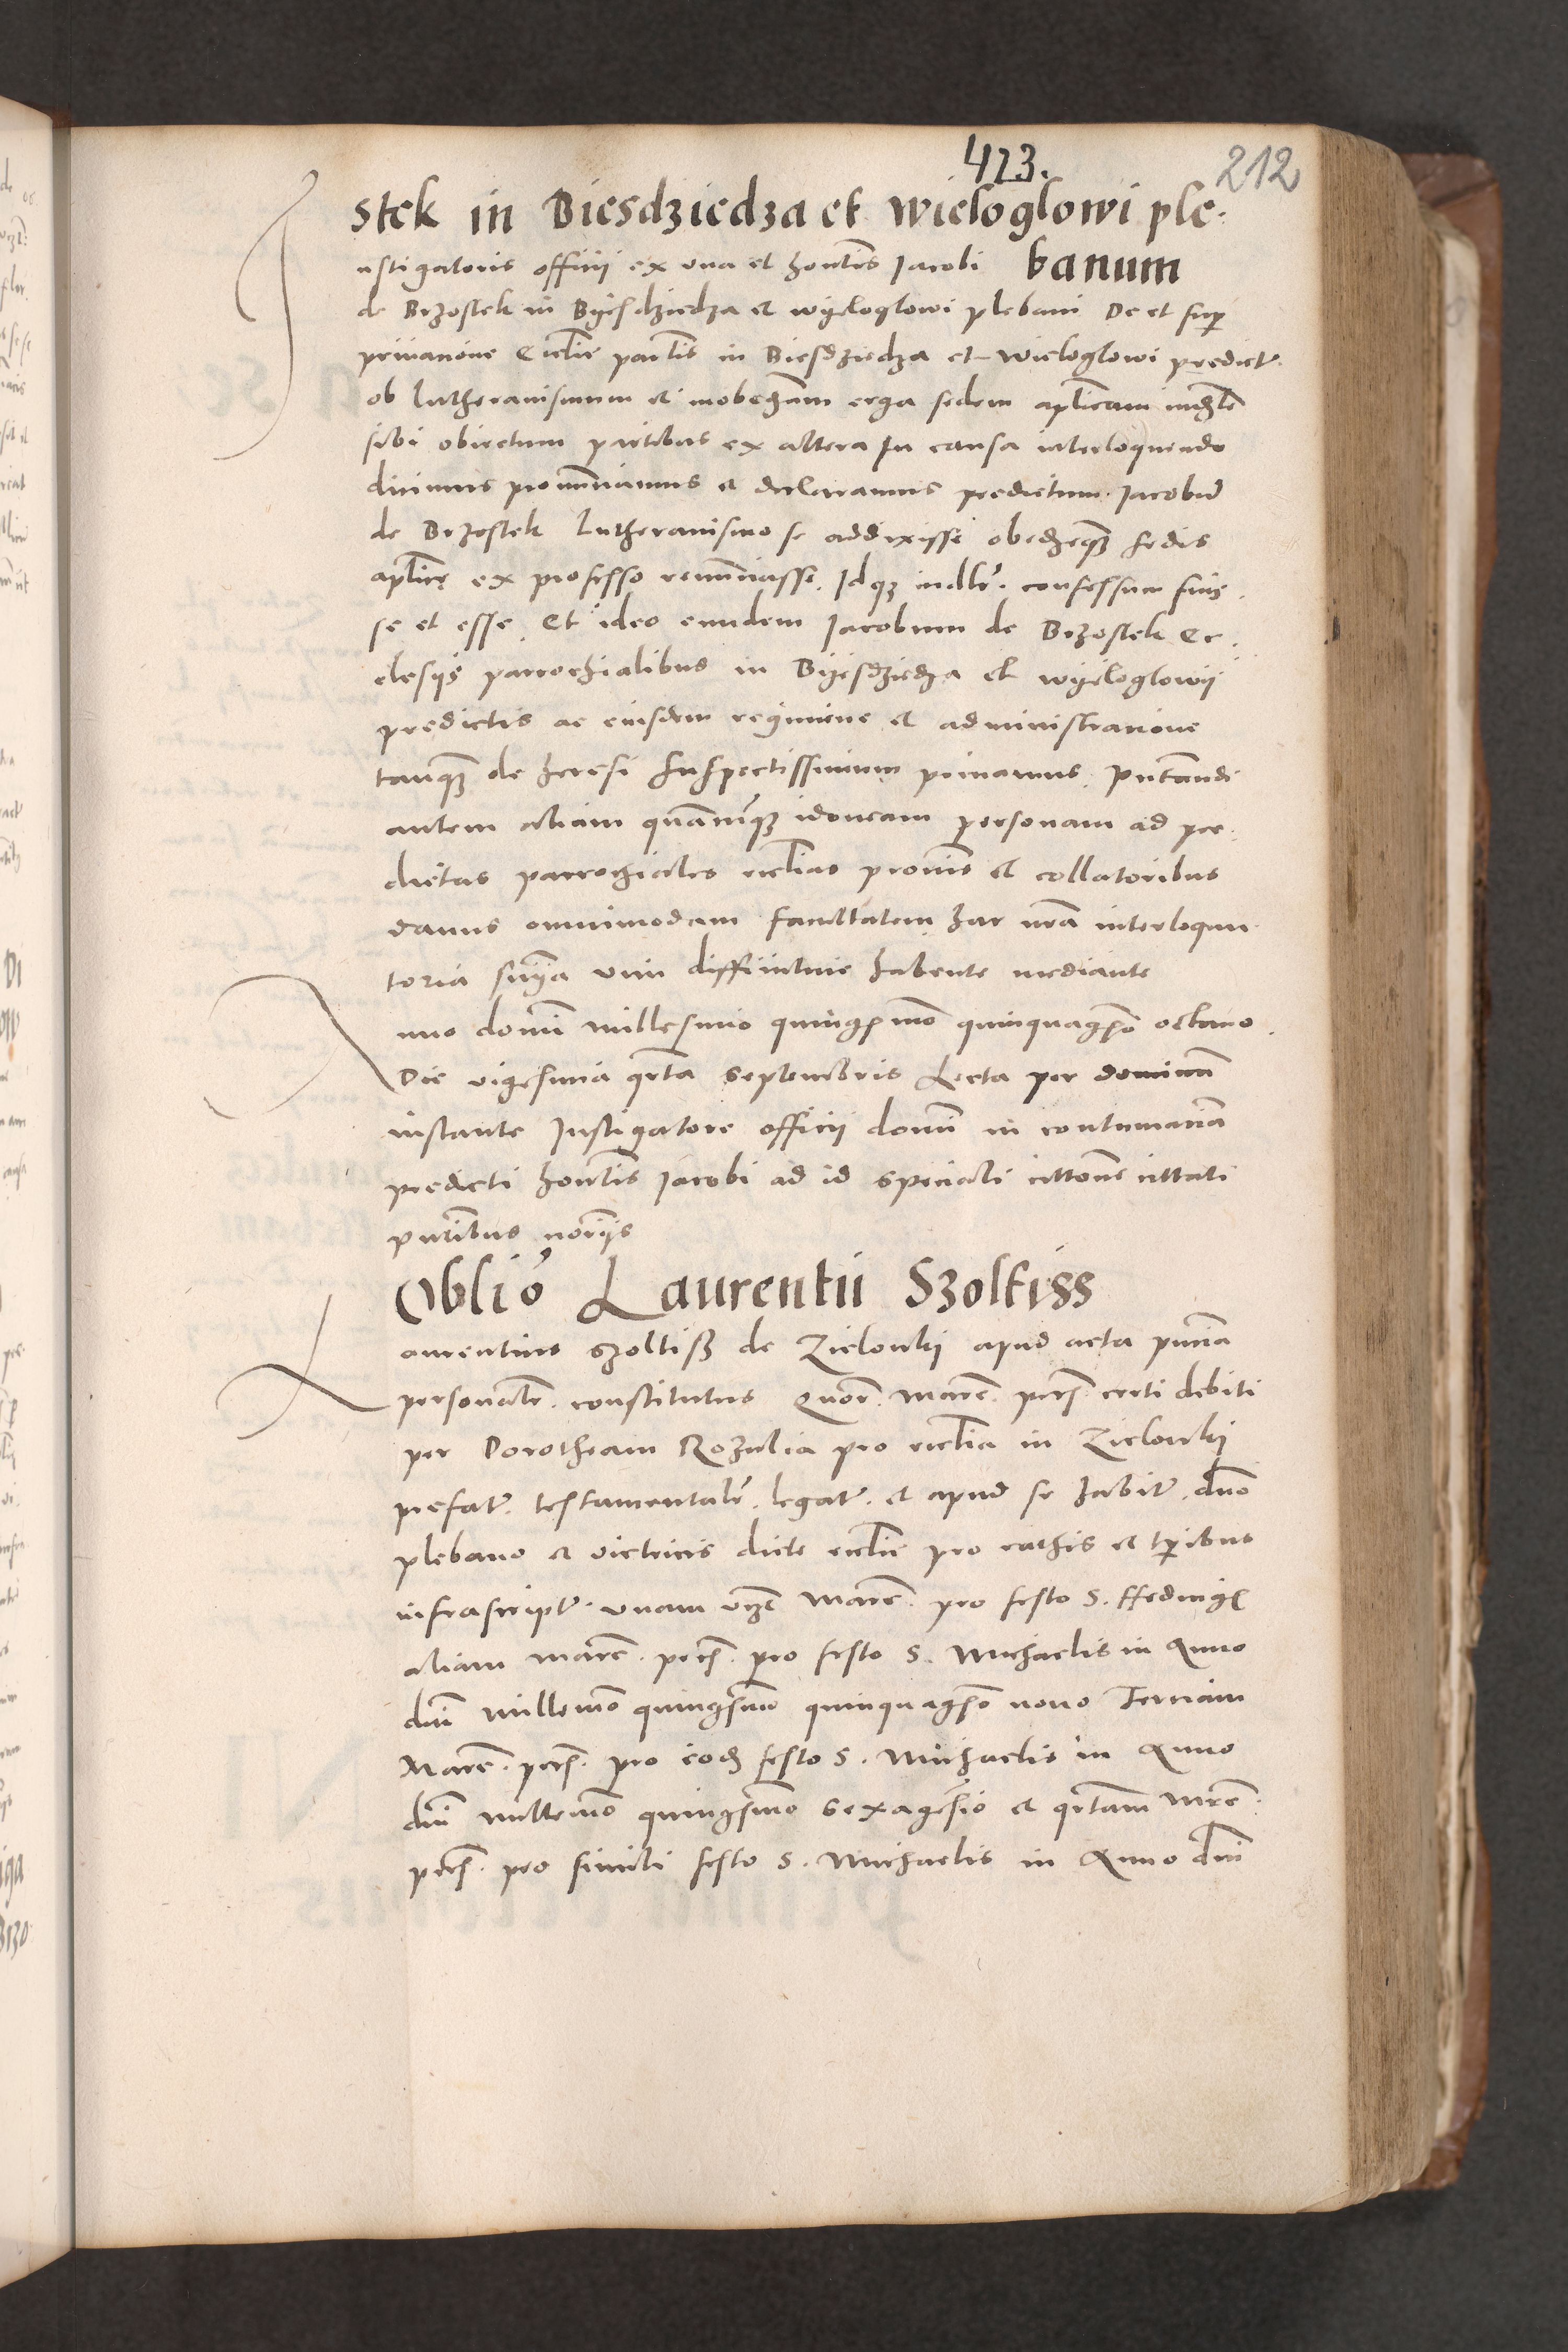 423.
212
stek in Biesdziedza et Wieloglowi ple-
banum
Instigatoris officii ex una et honlis Iacobi
de Brzostek in Byesdziedza et Wyeloglowi plebani De et sup
privacione Ecclie parlis in Biesdziedza et Wieloglowi predict.
ob lutheranismum et inobedam erga sedem aplicam
sibi obiectum partibus ex altera In causa interloquendo
dicimus pronunciamus et declaramus predictum Iacobum
de Brzostek lutheranismo se addixisse sedis
aplice ex professo renunciasse. Idq confessum fuis
se et esse. Et ideo eundem Iacobum de Brzostek Ec-
clesijs parrochialibus in Byesdziedza et Wyeloglowij
predictis ac eiusdem regimine et administracione
tanq de heresi suspectissimum privamus.
autem aliam idoneam personam ad pre-
dictas parrochiales ecclias et collatoribus
damus omnimodam facultatem hac nra interloquu-
toria vim diffinitive habente mediante
Anno domi millesimo quinqmo quinquagmo octavo.
Die vigesima qrta Septembris Lecta per dominum
instante Instigatore officii domi in contumaciam
predicti honlis Iacobi ad id speciali cittone cittati
pntibus norijs
Oblio Laurentii Szoltiss
Laurentius Szoltiss de Zielonki apud acta pncia
personalr. constitutus Quor. marc. pecs. certi debiti
per Dorotheam Rozulia pro ecclia in Zielonki
prefat. testamentalr. legat. et apud se habit. dno
plebano et victricis dicte ecclie pro rathis et tpibus
infrascript. unam vz marc. pro festo S. Hedwigis
aliam marc. pecs. pro festo S. Michaelis in Anno
dni millemo quingsimo quinquagmo nono Terciam
Marc. pecs. pro eod festo S. Michaelis in Anno
dni millemo quingsimo sexagesio et qrtam mrc.
pecs. pro simili festo S. Michaelis in Anno dni